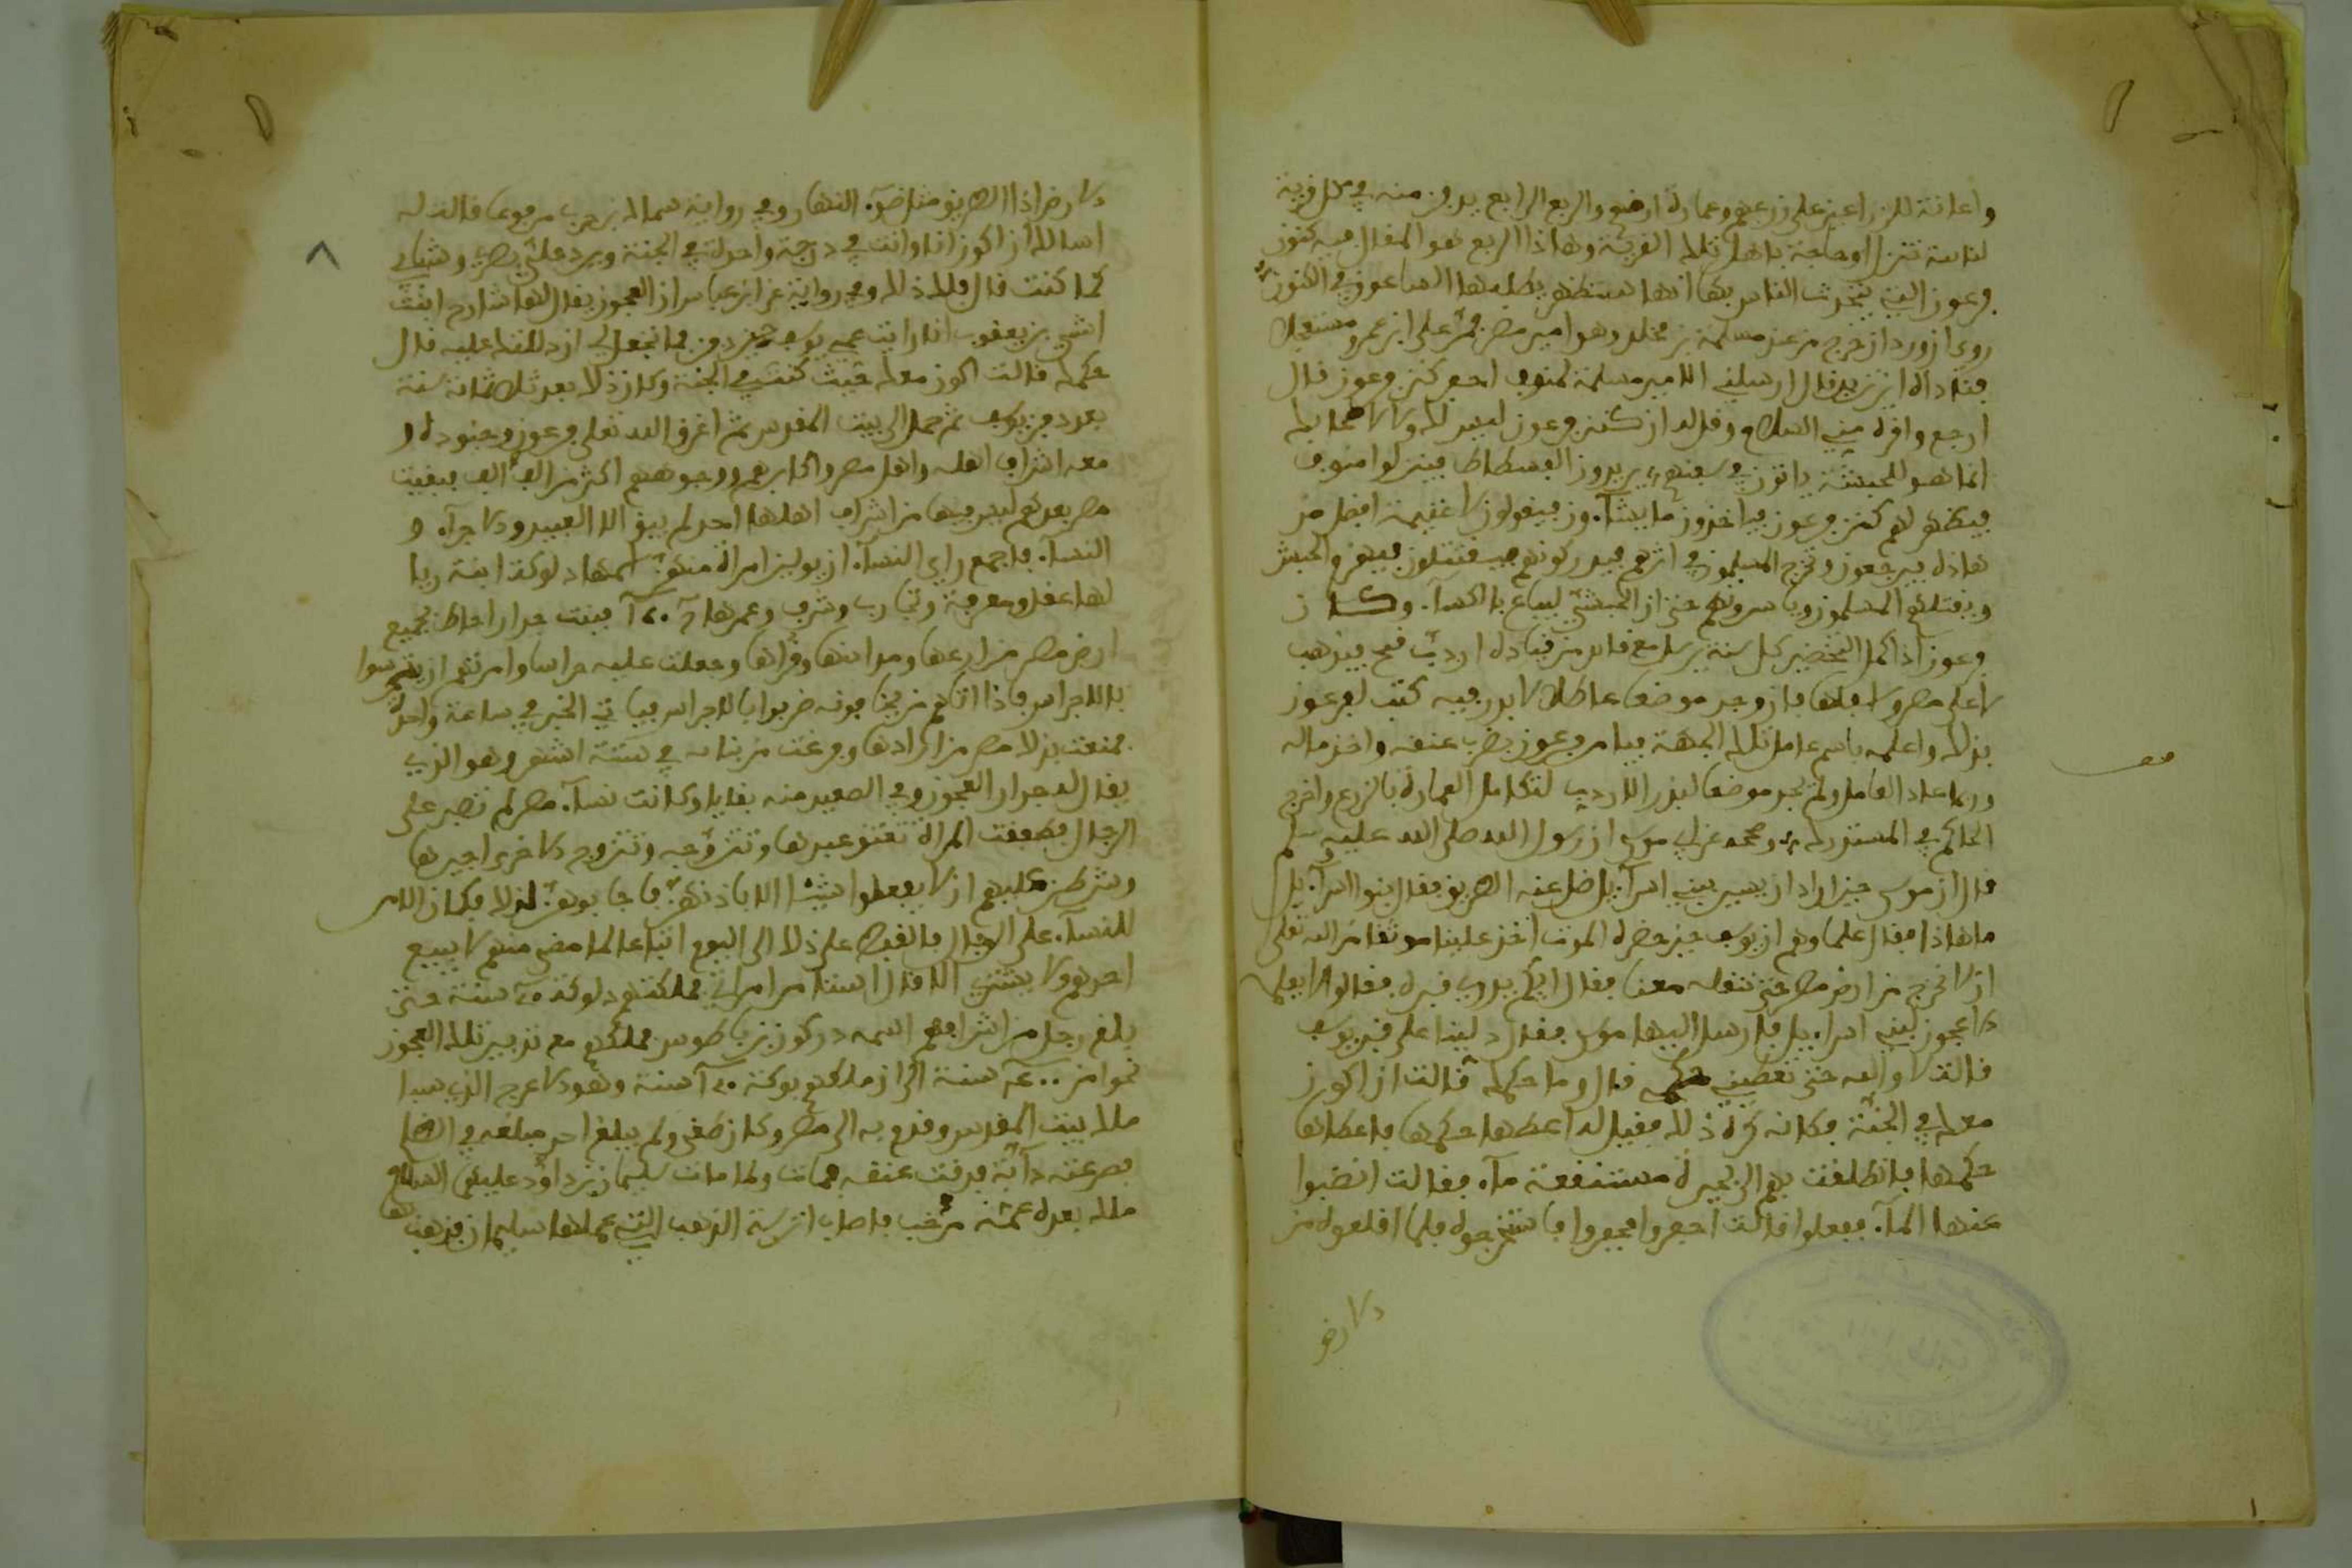 واعانة للزراعين على زرعهم وعمارة ارضهم والربع الرابع يدفن منه في كل قرية
لنائبة تنزل او حاجة باهل تلك القرية وهاذا الربع هو المقال فيه كنوز
فرعون التي يتحدث الناس بها انها ستظهر يطلبها الساعون في الكنوز
روي ان وردان خرج من عند مسلمة بن مخلد وهو امير مصر فمر على ابن عمرو مستعجلا
فناداه اين تريد قال ارسلني الامير مسلمة لمنوف احفر كنز فرعون قال
ارجع واقره مني السلام وقل له ان كنز فرعون ليس لك ولا لاصحابك
انما هو للحبشة ياتون في سفنهم يريدون الفسطاط فينزلوا منوف
فيظهر لهم كنز فرعون فياخذون ما يشآءون فيقولون لا غنيمة افضل من
هاذه فيرجعون وتخرج المسلمون في اثرهم فيدركونهم فيقتتلون فيهزم الحبش
ويقتلهم المسلمون وياسرونهم حتى ان الحبشي ليباع بالكسآء وكان
فرعون اذا كمل التخضير كل سنة يرسل مع قائد من قياده اردب قمح فيذهب
لاعلى مصر ولاسفلها فان وجد موضعا عاطلا لا بذر فيه كتب لفرعون
بذلك واعلمه باسم عامل تلك الجهة فيامر فرعون بضرب عنقه واخذ ماله
وربما عاد العامل ولم يجد موضعا لبذر الاردب لتكامل العمارة بالزرع واخرج
الحاكم في المستدرك وصححه عن ابي موسى ان رسول الله صلى الله عليه وسلم
قال ان موسى حين اراد ان يسير ببني اسرآئيل ضل عنه الطريق فقال بنو اسرآئيل
ما هاذا فقال علماؤهم ان يوسف حين حضره الموت اخذ علينا موثقا من الله تعلى
ان لا نخرج من ارض مصر حتى ننقله معنا فقال ايكم يدري قبره فقالوا لا يعلمه
الا عجوز لبني اسراءيل فارسل اليها موسى فقال دلينا على قبر يوسف
قالت لا والله حتى تعطيني حكمي قال وما حكمك قالت ان اكون
معك في الجنة فكانه كره ذلك فقيل له اعطها حكمها فاعطاها
حكمها فانطلقت بهم الى بحيرة مستنقعة مآء فقالت انضبوا
عنها المآء ففعلوا قالت احفروا فحفروا فاستخرجوه فلما اقلعوه من
الارض
الارض اذا الطريق مثل ضوء النهار وفي رواية سماك بن حرب مرفوعا قالت له
اسالك ان اكون انا وانت في درجة واحدة في الجنة ويرد علي بصري وشبابي
كما كنت قال فلك ذلك وفي رواية عن ابن عباس ان العجوز يقال لها شارح ابنت
اشي بن يعقوب انا رايت عمي يوسف حين دفن فما تجعل لي ان دللتك عليه قال
حكمك قالت اكون معك حيث كنت في الجنة وكان ذلك بعد ثلاثمائة سنة
بعد دفن يوسف ثم حمل الى بيت المقدس ثم اغرق الله تعلى فرعون وجنوده و
معه اشراف اهله واهل مصر واكابرهم ووجوههم اكثر من الف الف فبقيت
مصر بعدهم ليس فيها من اشراف اهلها احد لم يبق الا العبيد والاجرآء و
النسآء فاجمع راي النسآء ان يولين امراة منهن اسمها دلوكة ابنة ربا
لها عقل ومعرفة وتجارب وشرف وعمرها فبنت جدارا احاط بجميع
ارض مصر مزارعها ومدائنها وقراها وجعلت عليه حراسا وامرتهم ان يحرسوا
بالاجراس فاذا اتاهم من يخافونه ضربوا بالاجراس فياتي الخبر في ساعة واحدة
فمنعت بذلك مصر من ارادها وفرغت من بنائه في ستة اشهر وهو الذي
يقال له جدار العجوز وفي الصعيد منه بقايا وكانت نسآء مصر لم تصبر على
الرجال فطفقت المراة تعتق عبدها وتتزوجه وتتزوج الاخرى اجيرها
وشرطن عليهم ان لا يفعلوا شيئا الا باذنهن فاجابوهن لذلك فكان الامر
للنسآء على الرجال فالقبط على ذلك الى اليوم اتباعا لما مضى منهم لا يبيع
احدهم ولا يشتري الا قال استامر امراتي فملكتهم دلوكة ٢٠ سنة حتى
بلغ رجل من اشرافهم اسمه دركون بن باطوس فملكهم مع تدبير تلك العجوز
نحوا من ٤٠٠ سنة الى ان ملكهم بوكة ١٢٠ سنة وهو الاعرج الذي سبا
ملك بيت المقدس وقدم به الى مصر وكان طغى ولم يبلغ احد مبلغه في الضلال
فصرعته دآبة فدقت عنقه فمات ولما مات سليمان بن داوود عليهما السلام
ملك بعده عمه مرخب فاصاب اترسة الذهب التي عملها سليمان فذهب بها